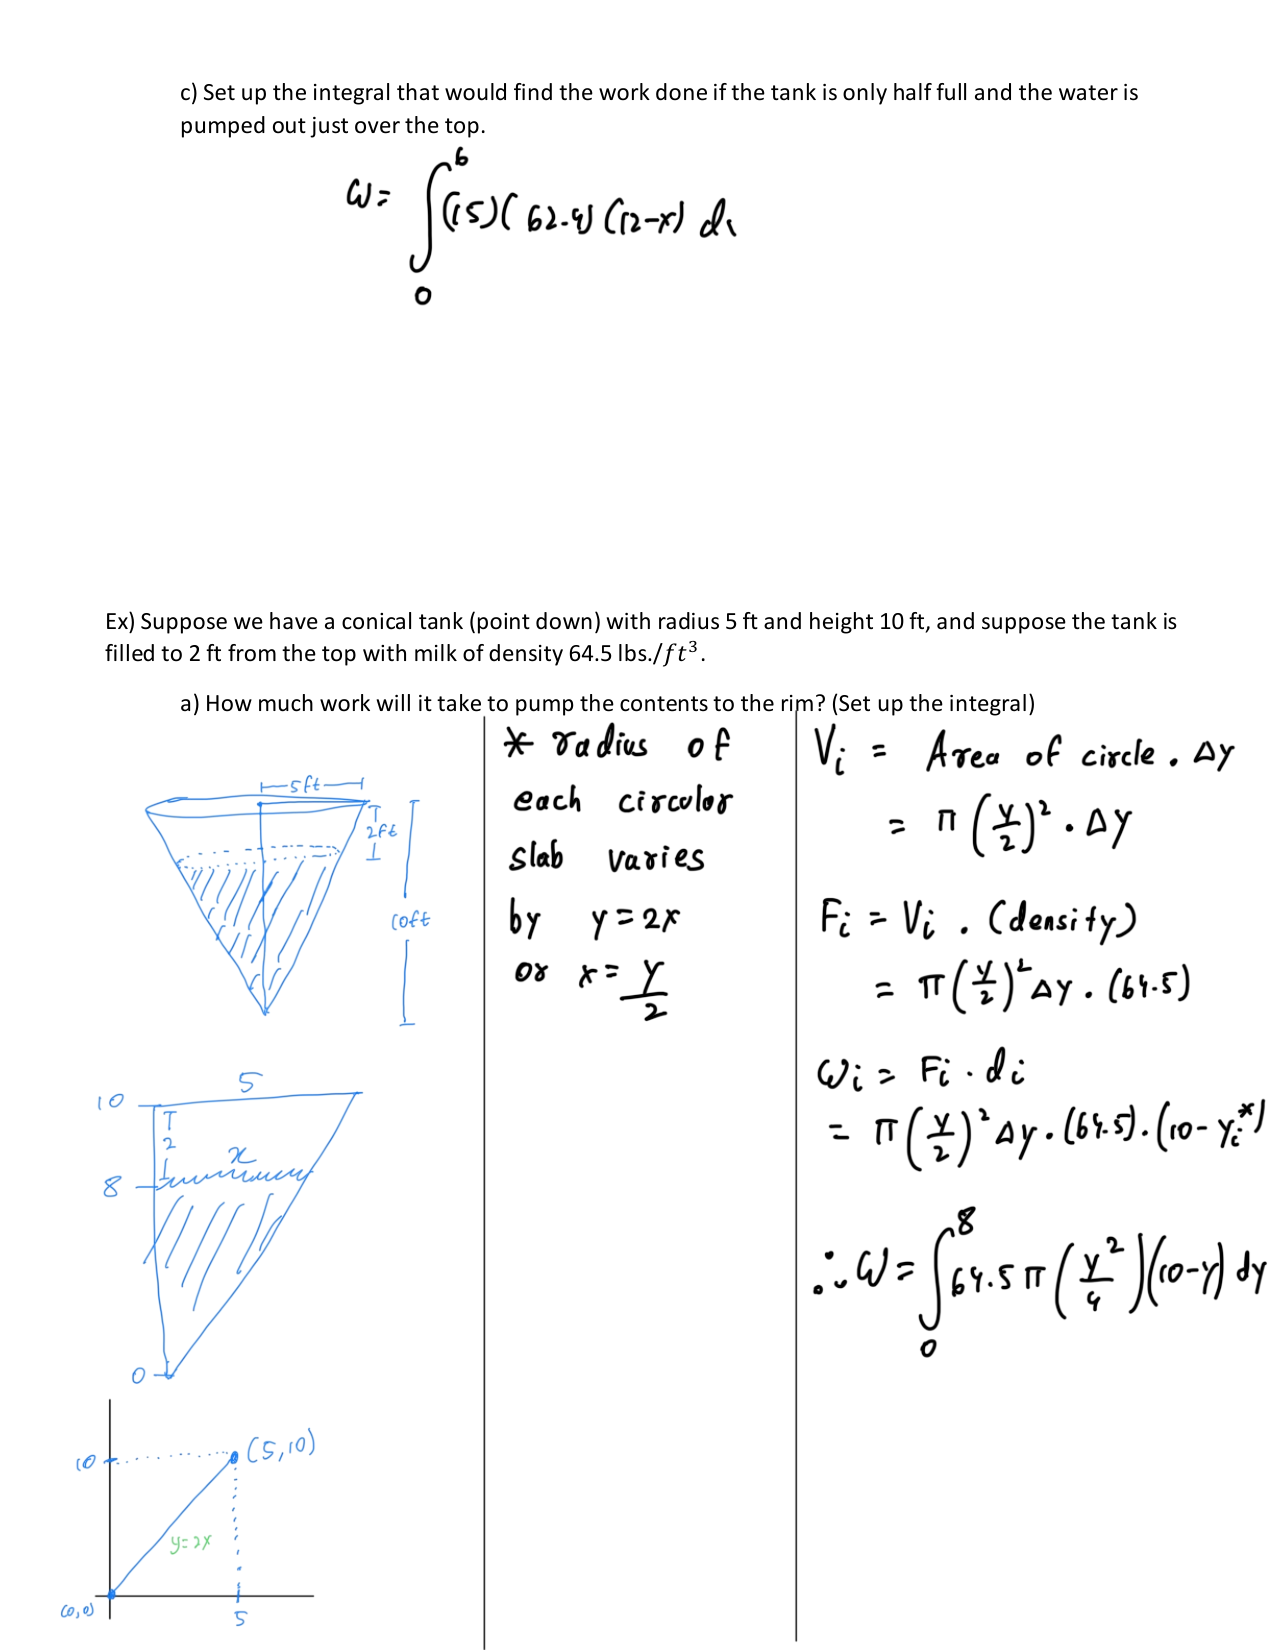 c) Set up the integral that would find the work done if the tank is only half full and the water is
pumped out just over the top.
W = ∫₀⁶ (15)(62.4)(12-x) dx
Ex) Suppose we have a conical tank (point down) with radius 5 ft and height 10 ft, and suppose the tank is
filled to 2 ft from the top with milk of density 64.5 lbs./ft³.
a) How much work will it take to pump the contents to the rim? (Set up the integral)
5ft
2ft
10ft
10
5
2
x
8
0
10
(5,10)
y=2x
(0,0)
5
* radius of
each circular
slab varies
by y=2x
or x= y/2
Vi = Area of circle . Δy
= π(y/2)² . Δy
Fi = Vi . (density)
= π(y/2)² Δy . (64.5)
Wi = Fi . di
= π(y/2)² Δy . (64.5) . (10- yᵢ*)
∴ W = ∫₀⁸ 64.5π (y²/4)(10-y) dy